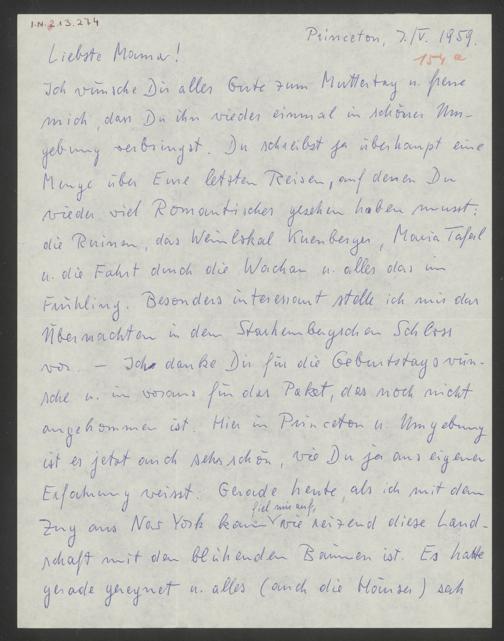 I.N. 213.274
Princeton, 7./IV. 1959.
154a
Liebste Mama!
Ich wünsche Dir alles Gute zum Muttertag u. freue
mich, dass Du ihn wieder einmal in schöner Um-
gebung verbringst. Du schreibst ja überhaupt eine
Menge über Eure letzten Reisen, auf denen Du
wieder viel Romantisches gesehen haben musst:
die Ruinen, das Weinlokal Kuenberger, Maria Taferl
u. die Fahrt durch die Wachau u. alles das im
Frühling. Besonders interessant stelle ich mir das
Übernachten in dem Starhembergschen Schloss
vor. – Ich danke Dir für die Geburtstagswün-
sche u. im voraus für das Paket, das noch nicht
angekommen ist. Hier in Princeton u. Umgebung
ist es jetzt auch sehr schön, wie Du ja aus eigener
Erfahrung weisst. Gerade heute, als ich mit dem
fiel mir auf,
Zug aus New York kam wie reizend diese Land-
schaft mit den blühenden Bäumen ist. Es hatte
gerade geregnet u. alles (auch die Häuser) sah